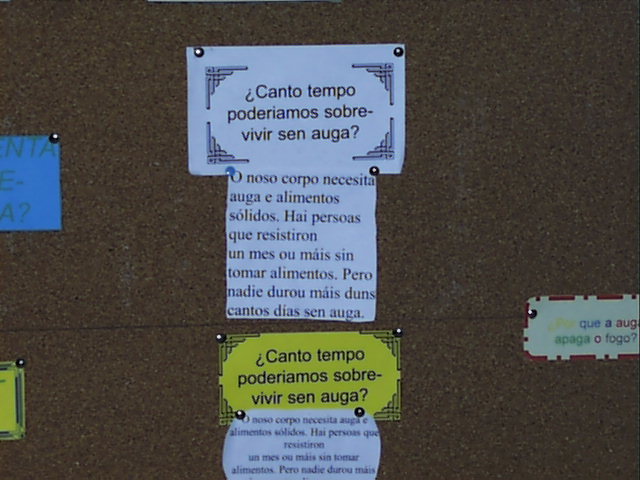 ¿Canto tempo
poderiamos sobre-
vivir sen auga?
O noso corpo necesita
auga e alimentos
sólidos. Hai persoas
que resistiron
un mes ou máis sin
tomar alimentos. Pero
nadie durou máis duns
cantos días sen auga.
¿Canto tempo
poderiamos sobre-
vivir sen auga?
O noso corpo necesita auga e
alimentos sólidos. Hai persoas que
resistiron
un mes ou máis sin tomar
alimentos. Pero nadie durou máis
ENTA
E-
A?
¿Por que a auga
apaga o fogo?